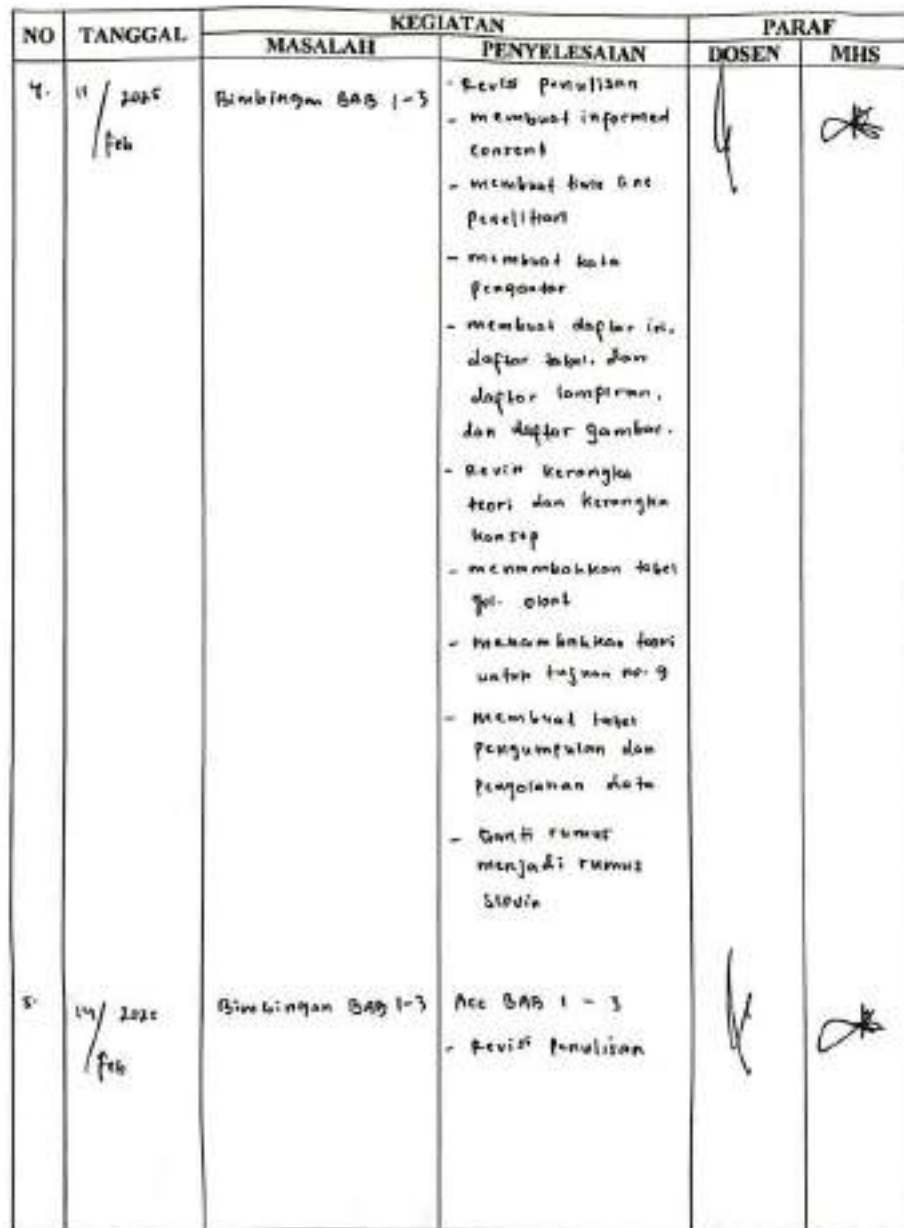 NO TANGGAL KEGIATAN PARAF
MASALAH PENYELESAIAN DOSEN MHS
4. 11/2025 Feb Bimbingan BAB 1-3 - Revisi penulisan
- membuat informed
consent
- membuat time line
penelitian
- membuat kata
pengantar
- membuat daftar isi,
daftar tabel, dan
daftar lampiran,
dan daftar gambar.
- Revisi kerangka
teori dan kerangka
konsep
- menambahkan tabel
gol. obat
- menambahkan teori
untuk tujuan no. 9
- Membuat tabel
pengumpulan dan
pengolahan data
- Ganti rumus
menjadi rumus
slovin
5. 14/2025 Feb Bimbingan BAB 1-3 Acc BAB 1 - 3
- Revisi Penulisan